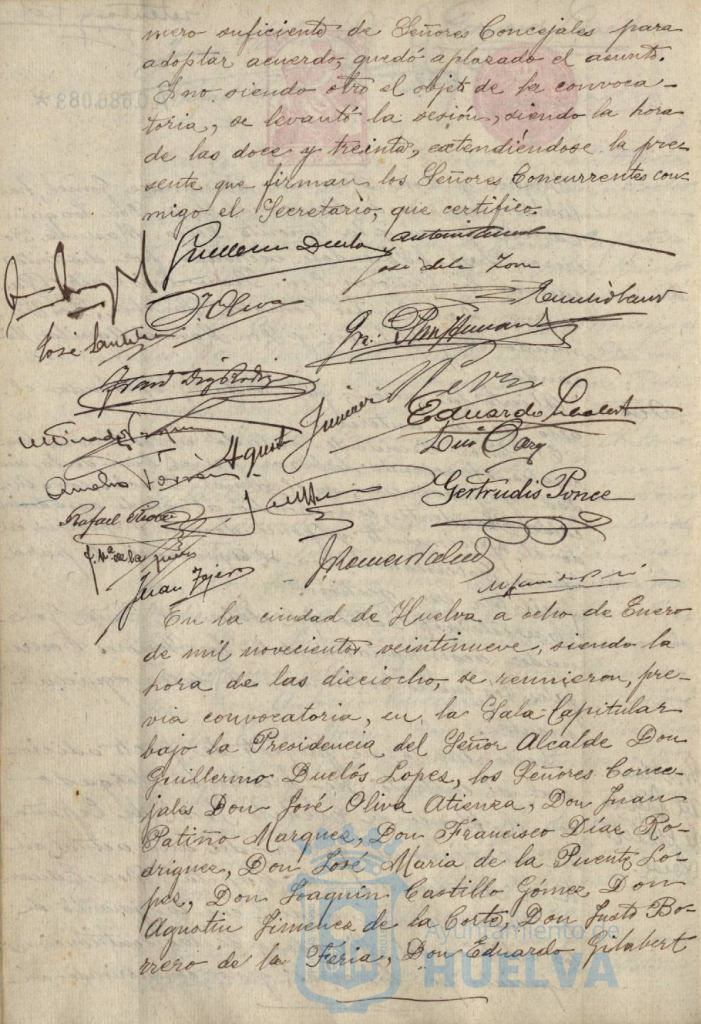 mero suficiente de Señores Concejales para
adoptar acuerdo, quedó aplazado el asunto.
Y no siendo otro el objeto de la convoca-
toria, se levantó la sesión, siendo la hora
de las doce y treinta, extendiéndose la pre-
sente que firman los Señores Concurrentes con-
migo el Secretario, que certifico.
Guillermo Duclós
José de la
J. Oliva
José
Eduardo
Luis
Agustín Jiménez
Gertrudis Ponce
Rafael
J. Mª de la Puente
Juan Tejero
En la ciudad de Huelva a ocho de Enero
de mil novecientos veintinueve, siendo la
hora de las dieciocho, se reunieron, pre-
via convocatoria, en la Sala Capitular
bajo la Presidencia del Señor Alcalde Don
Guillermo Duclós Lopez, los Señores Conce-
jales Don José Oliva Atienza, Don Juan
Patiño Marquez, Don Francisco Díaz Ro-
driguez, Don José Maria de la Puente Lo-
pez, Don Joaquin Castillo Gómez, Don
Agustin Jimenez de la Corte, Don Justo Bo-
rrero de la Feria, Don Eduardo Gilabert
Ayuntamiento de
HUELVA